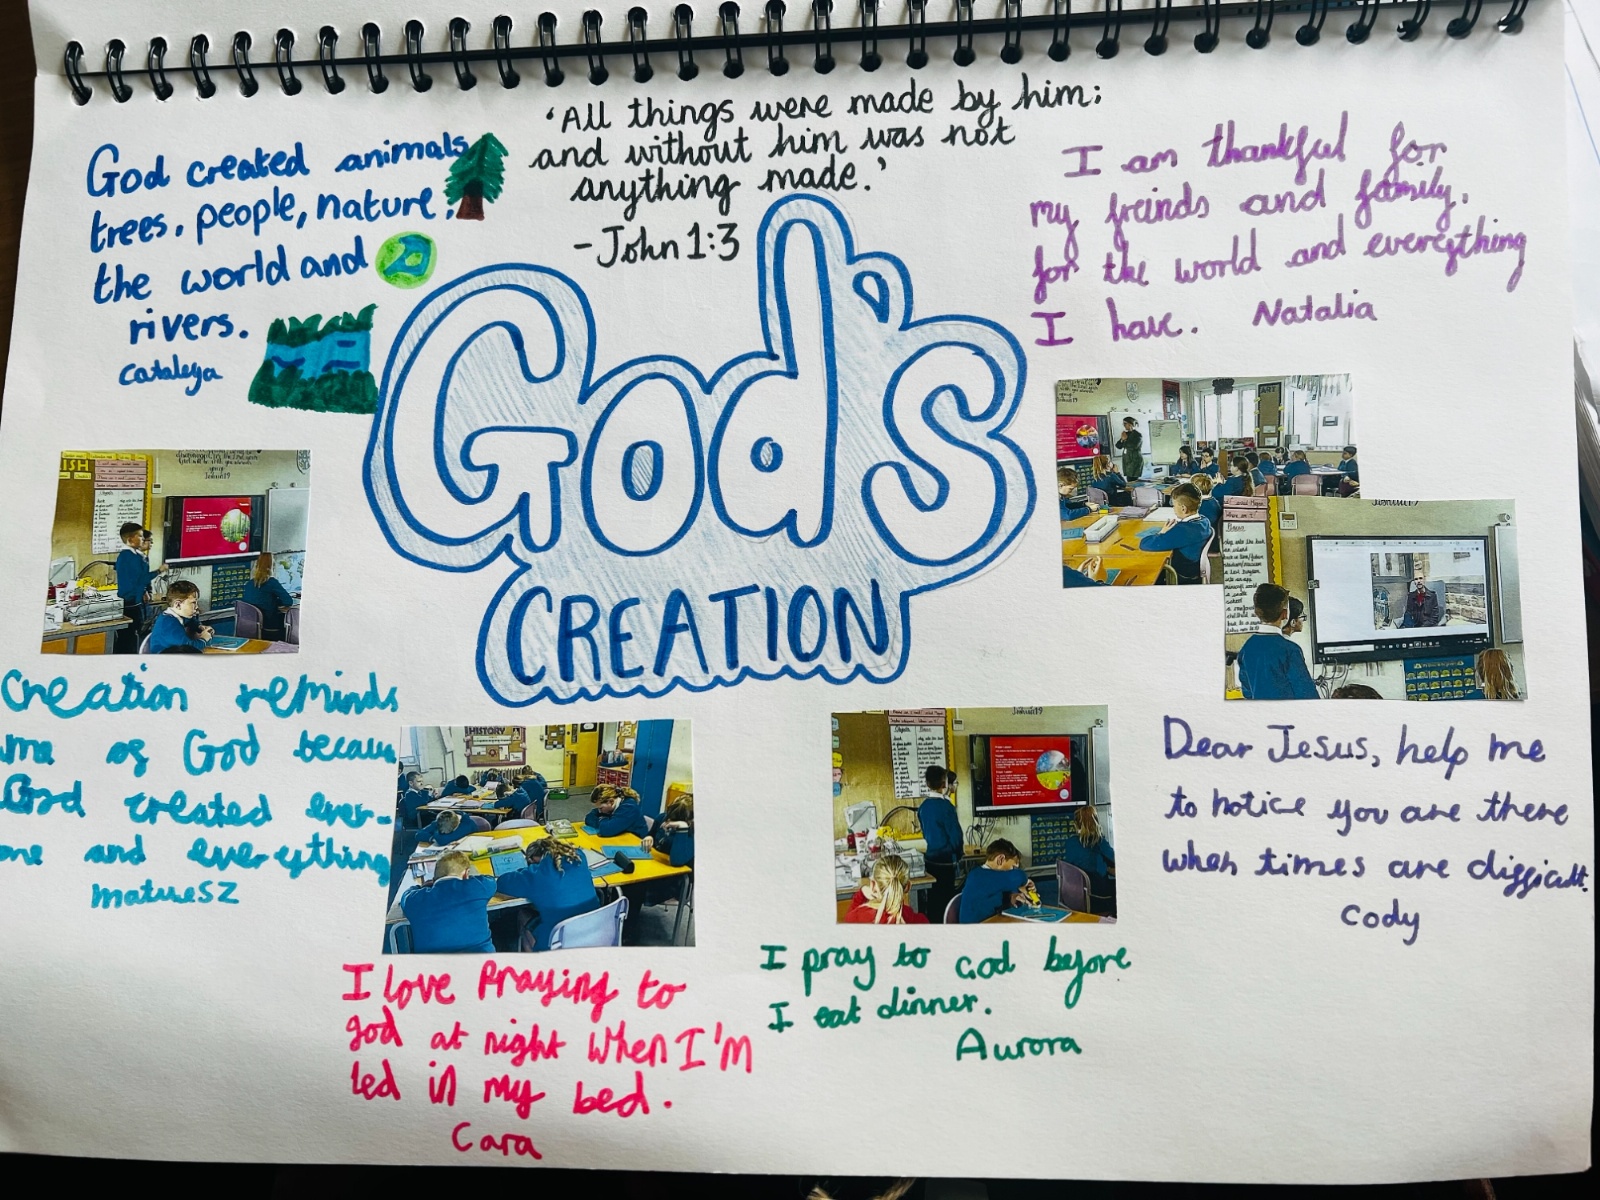 'All things were made by him;
and without him was not
anything made.'
- John 1:3
God created animals,
trees, people, nature,
the world and
rivers.
Cataleya
I am thankful for
my freinds and family,
for the world and everything
I have. Natalia
God's
CREATION
Creation reminds
me of God because
God created ever-
one and everything
matuesz
HISTORY
Joshua 1:9
Dear Jesus, help me
to notice you are there
when times are difficult.
Cody
I love Praying to
god at night When I'M
led in my bed.
Cara
I pray to God before
I eat dinner.
Aurora